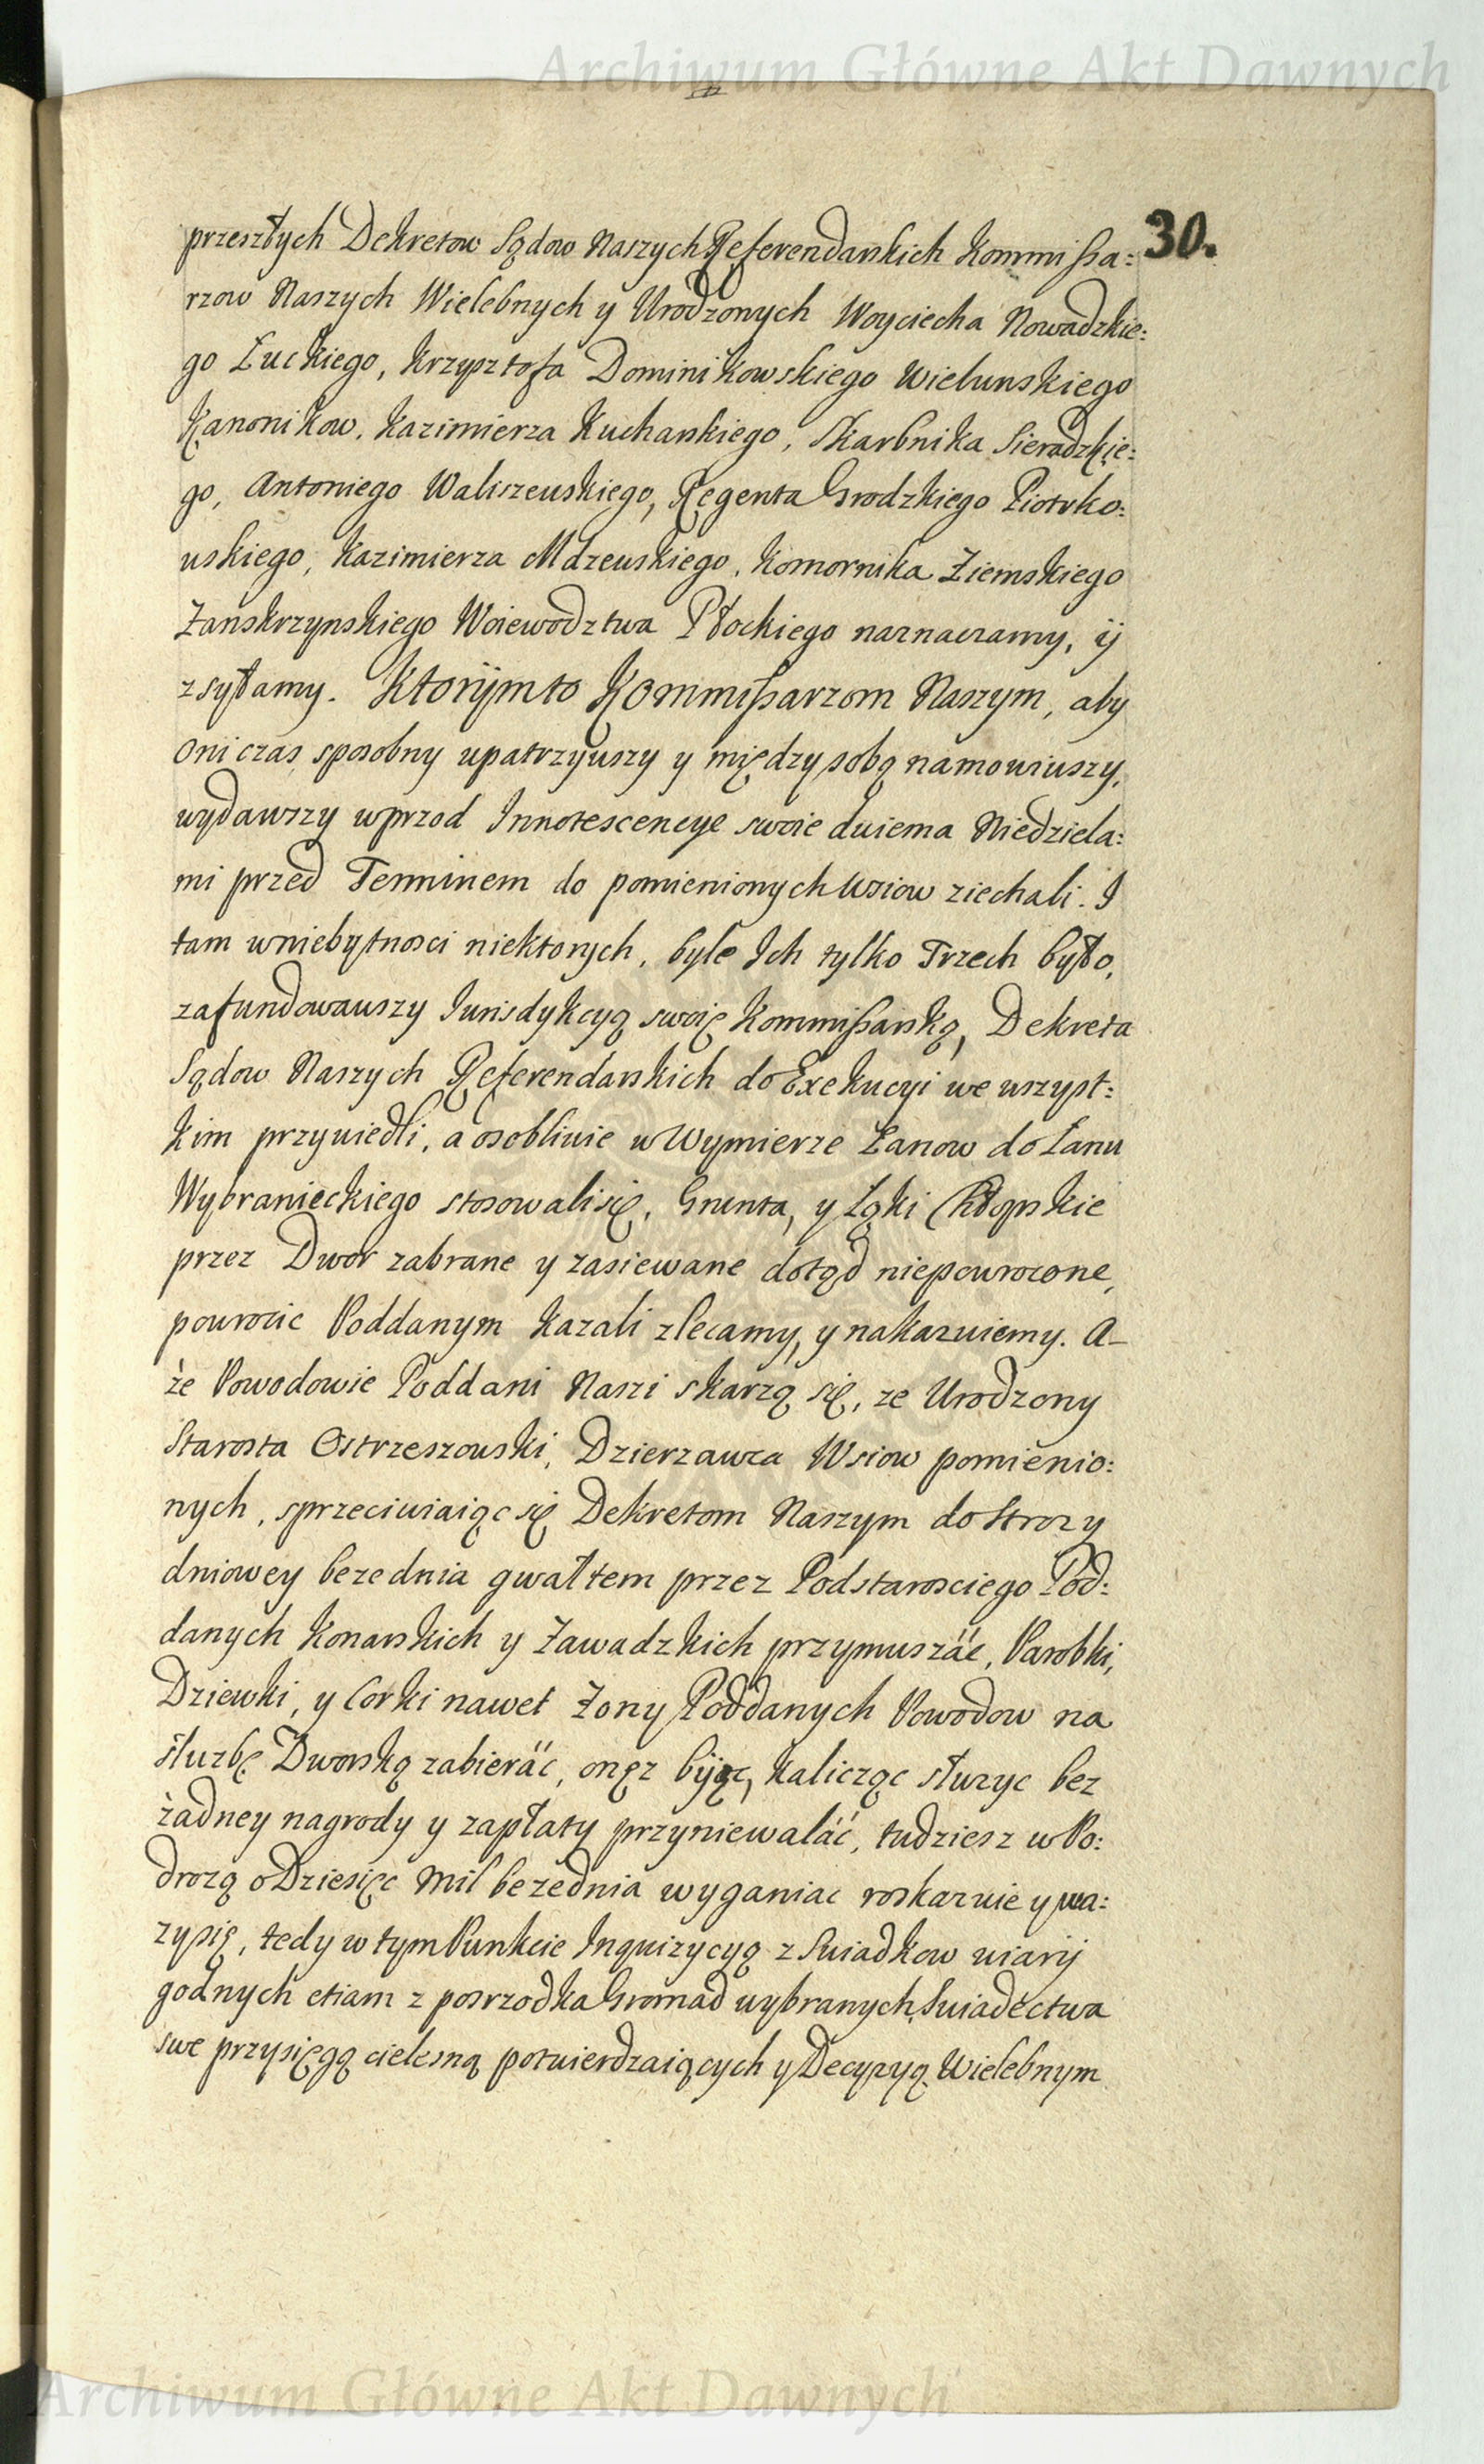 Archiwum Główne Akt Dawnych
30.
przeszłych Dekretow Sądow Naszych Referendarskich Kommissa:
rzow Naszych Wielebnych y Urodzonych Woyciecha Nowadzkie:
go Łuckiego, Krzysztofa Dominikowskiego Wielunskiego
Kanonikow. Kazimierza Kucharskiego, Skarbnika Sieradzkie:
go, Antoniego Waliszewskiego, Regenta Grodzkiego Piotrko:
wskiego, Kazimierza Mdzewskiego, Komornika Ziemskiego
Zanskrzynskiego Woiewodztwa Płockiego naznaczamy, ÿ
zsyłamy. Ktorÿmto Kommissarzom Naszym, aby
oni czas sposobny upatrzywszy y między sobą namowiwszy,
wydawszy wprzod Innotescencye swoie dwiema Niedziela:
mi przed Terminem do pomienionych Wsiow ziechali. I
tam w niebytnosci niektorych, byle Ich tylko Trzech było,
zafundowawszy Iurisdykcyą swoię Kommissarską, Dekreta
Sądow Naszych Referendarskich do Exekucyi we wszyst:
kim przywiedli, a osobliwie w Wymierze Łanow do Łanu
Wybranieckiego stosowali się, Grunta, y Łąki Chłopskie
przez Dwor zabrane y zasiewane dotąd niepowrocone,
powrocic Poddanym kazali zlecamy, y nakazuiemy. A_
że Powodowie Poddani Naszi skarzą się, ze Urodzony
Starosta Ostrzeszowski, Dzierzawca Wsiow pomienio:
nych, sprzeciwiaiąc się Dekretom Naszym do Strozy
dniowey bezednia gwałtem przez Podstarosciego Pod:
danych Konarskich y Zawadzkich przymuszäc, Parobki,
Dziewki, y Corki nawet Zony Poddanych Powodow na
służbę Dworską zabieräc, onęz bijąc, kalicząc słuzyc bez
żadney nagrody y zapłaty przyniewaläć, tudziesz w Po:
drozą o Dziesięc Mil bezednia wyganiac roskazuie y wa:
zy się, tedy w tym Punkcie Inquizycyą z Swiadkow wiarÿ
godnych etiam z posrzodka Gromad wybranych, Swiadectwa
swe przysięgą cielesną potwierdzaiących y Decyzyą Wielebnym
Archiwum Główne Akt Dawnych